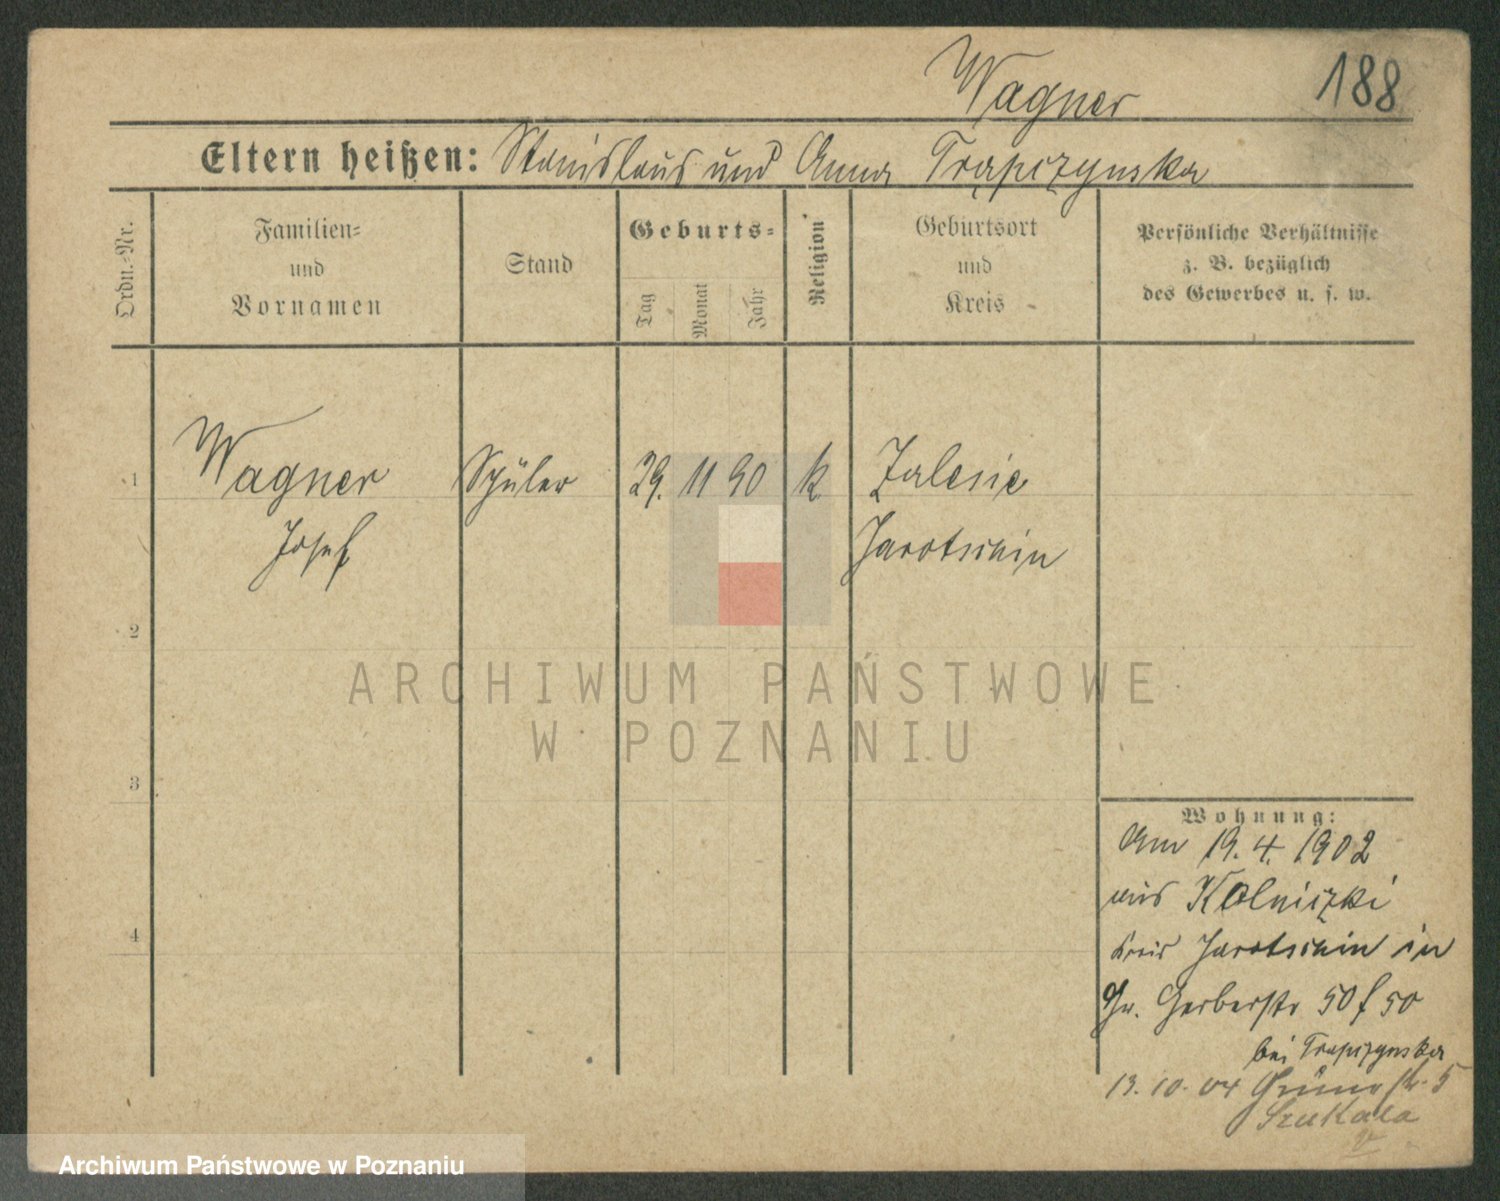 Wagner
188
Eltern heißen: Stanislaus und Anna Trapczynska
Ordn.-Nr.
Familien-
und
Vornamen
Stand
Geburts-
Tag
Monat
Jahr
Religion
Geburtsort
und
Kreis
Persönliche Verhältnisse
z. B. bezüglich
des Gewerbes u. s. w.
1
Wagner
Josef
Schüler
29. 11 90
k
Zalesie
Jarotschin
2
3
4
ARCHIWUM PAŃSTWOWE
W POZNANIU
Wohnung:
Am 19. 4. 1902
aus Kolniczki
Kreis Jarotschin in
Gr. Gerberstr 50 f 50
bei Trapczynska
13. 10. 04 Grüne str. 5
Szukala
Archiwum Państwowe w Poznaniu